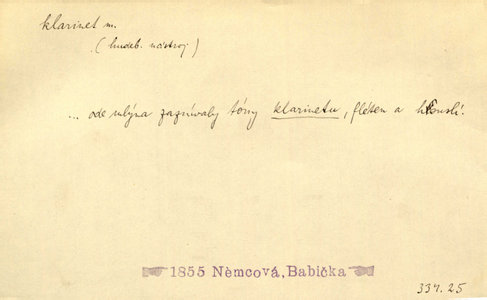 klarinet m.
(hudeb. nástroj)
... ode mlýna zaznívaly tóny klarinetu, fléten a houslí.
1855 Němcová, Babička
334.25